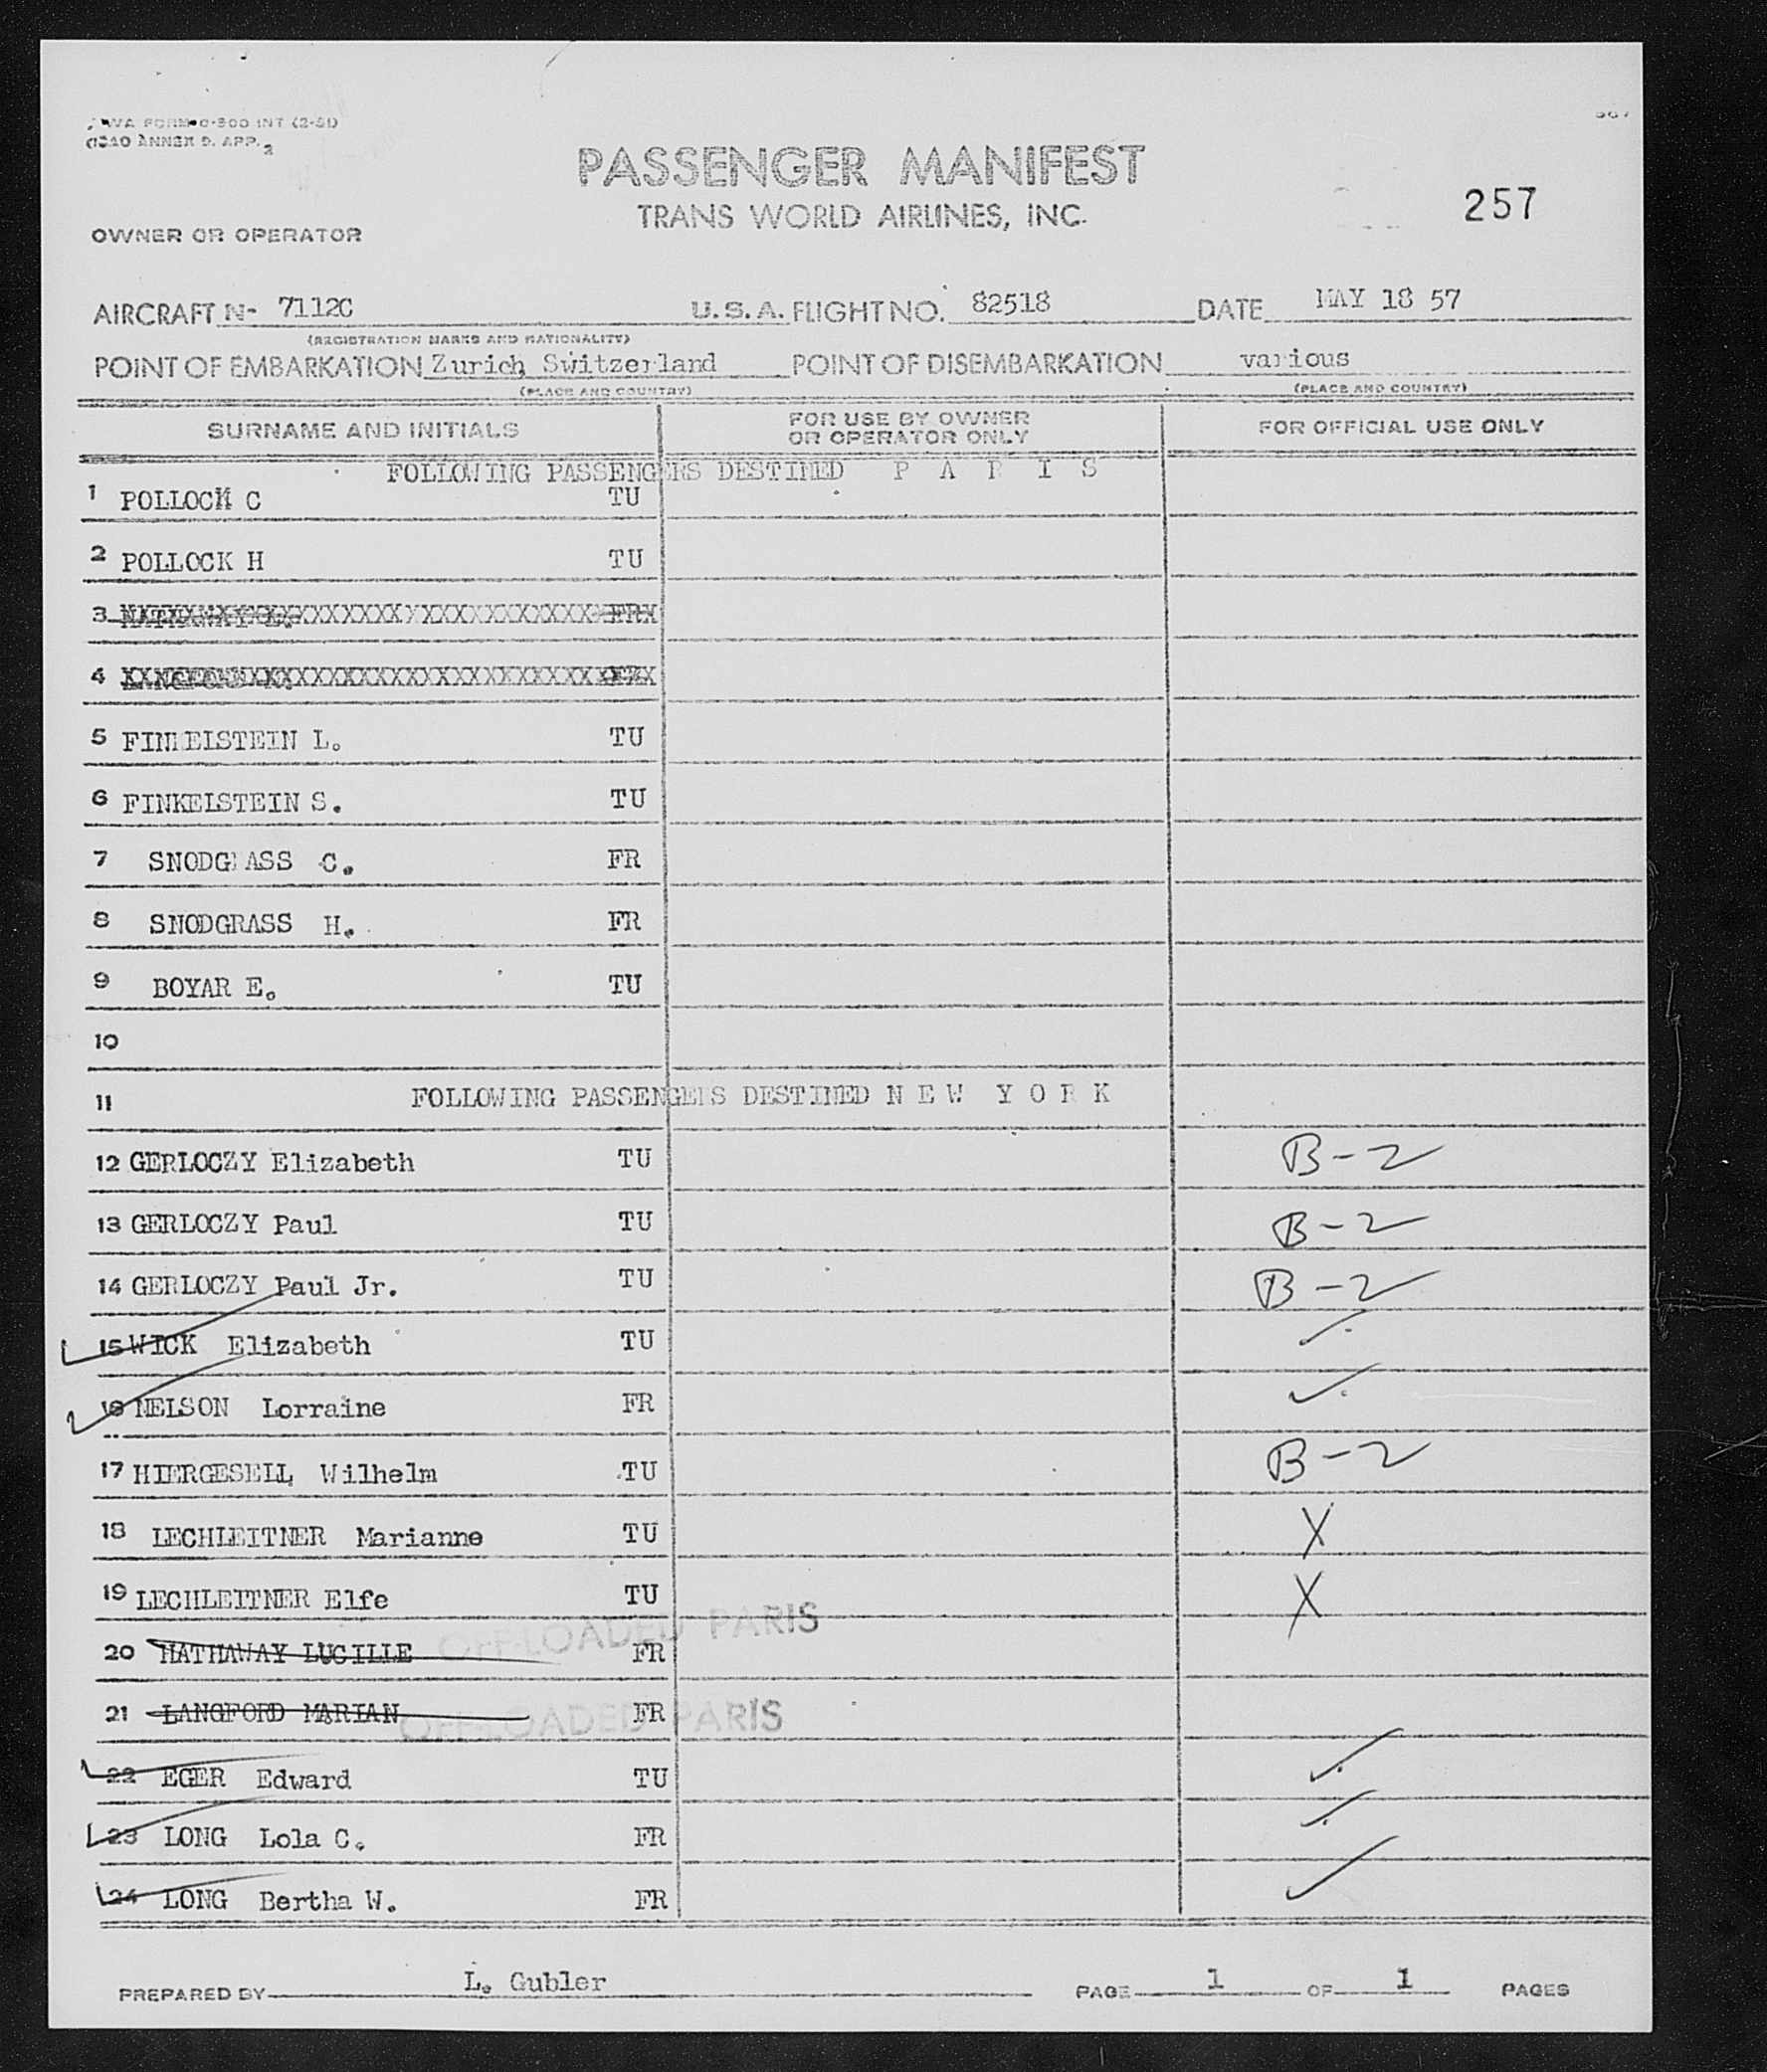 TWA FORM O-300 INT (2-51)
ICAO ANNEX 9, APP. 2
PASSENGER MANIFEST
TRANS WORLD AIRLINES, INC.
257
OWNER OR OPERATOR
AIRCRAFT N- 7112C U.S.A. FLIGHT NO. 82518 DATE MAY 18 57
(REGISTRATION MARKS AND NATIONALITY)
POINT OF EMBARKATION Zurich, Switzerland POINT OF DISEMBARKATION various
(PLACE AND COUNTRY) (PLACE AND COUNTRY)
SURNAME AND INITIALS FOR USE BY OWNER OR OPERATOR ONLY FOR OFFICIAL USE ONLY
FOLLOWING PASSENGERS DESTINED P A R I S
1 POLLOCK C TU
2 POLLOCK H TU
3 HATHAWAY L. FR
4
5 FINKELSTEIN L. TU
6 FINKELSTEIN S. TU
7 SNODGRASS C. FR
8 SNODGRASS H. FR
9 BOYAR E. TU
10
11 FOLLOWING PASSENGERS DESTINED N E W Y O R K
12 GERLOCZY Elizabeth TU B-2
13 GERLOCZY Paul TU B-2
14 GERLOCZY Paul Jr. TU B-2
15 WICK Elizabeth TU ✓
16 NELSON Lorraine FR ✓
17 HIERGESELL, Wilhelm TU B-2
18 LECHLEITNER Marianne TU X
19 LECHLEITNER Elfe TU X
OFF-LOADED PARIS
20 HATHAWAY LUCILLE FR
21 LANGFORD MARIAN FR
OFF-LOADED PARIS
22 EGER Edward TU ✓
23 LONG Lola C. FR ✓
24 LONG Bertha W. FR ✓
PREPARED BY L. Gubler PAGE 1 OF 1 PAGES